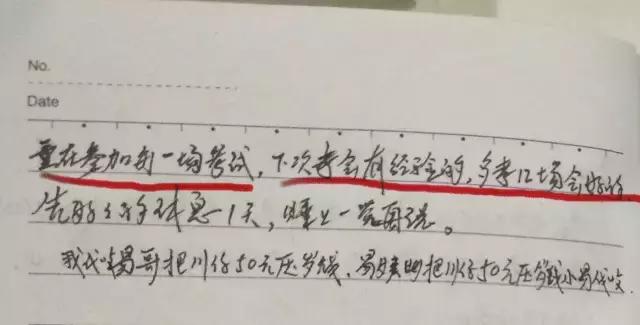 No.
Date
重在参加到一场考试，下次考会有经验的，多考几场会好的
先好好休息一天，睡上一觉再说。
我代表易哥把川仔50元压岁钱，易晓明把川仔50元压岁钱小易代收.